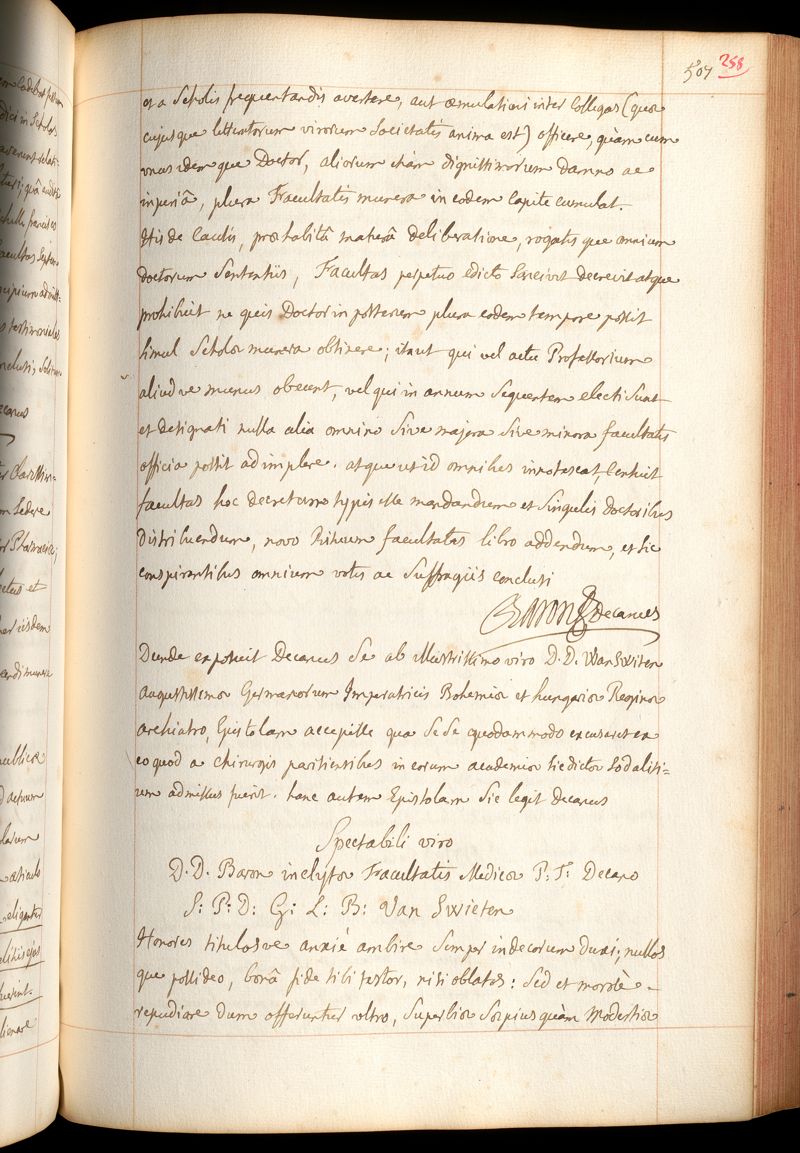 507 258
et a Scholis frequentandis avertere, aut æmulationi inter Collegas (quæ
cujusque litteratorum virorum Societatis anima est) officere, quàm cum
unus idemque Doctor, aliorum etiam dignissimorum damno ac
injuriâ, plura Facultatis munera in eodem Capite cumulat.
His de Causis, præhabitâ maturâ deliberatione, rogatisque omnium
doctorum Sententiis, Facultas perpetuo edicto Sancivit decrevit atque
prohibuit ne quis Doctor in posterum plura eodem tempore possit
simul Scholæ munera obtinere; itaut qui vel actu Professorium
aliudve munus obeunt, vel qui in annum Sequentem electi Sunt
et designati nulla alia omnino Sive majora Sive minora facultatis
officia possit adimplere. atque ut id omnibus innotescat, Censuit
facultas hoc decretum typis esse mandandum et Singulis doctoribus
distribuendum, novo Rituum facultatis libro addendum, et Sic
conspirantibus omnium votis ac Suffragiis conclusi
Baron Decanus
Deinde exposuit Decanus Se ab Illustrissimo viro D.D. Van Switen
augustissimæ Germanorum Imperatricis Bohemiæ et hungariæ Reginæ
archiatro, Epistolam accepisse qua Sese quodammodo excusaret ex
eo quod a chirurgis parisiensibus in eorum academiæ sic dictæ Sodaliti=
um admissus fuerit. hanc autem Epistolam Sic legit decanus
Spectabili viro
D.D. Baron inclytæ Facultatis Medicæ P: T: Decano
S: P: D: G: L: B: Van Swieten
Honores titulosve anxié ambire Semper indecorum duxi; nullos
que possideo, bonâ fide tibi testor, nisi oblatos: Sed et morosè
repudiare dum offeruntur ultro, Superbiæ Sæpius quàm Modestiæ